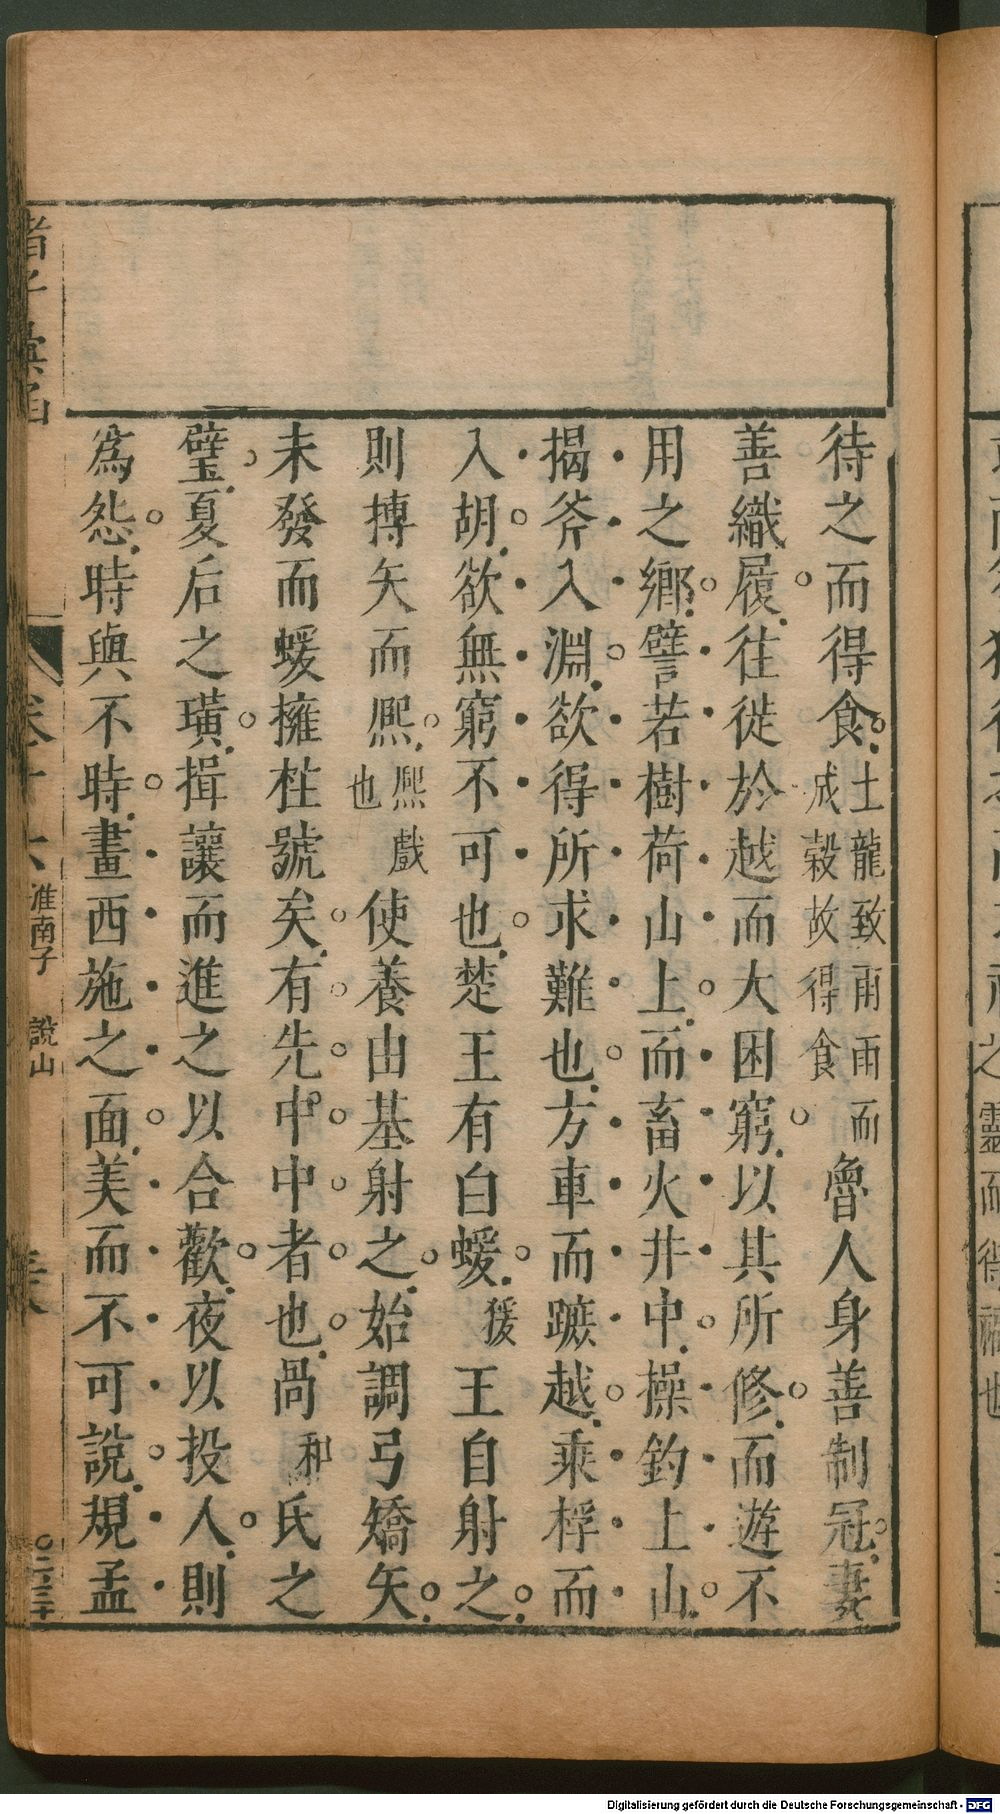 待之而得食土龍致雨雨而成穀故得食魯人身善制冠妻
善織履往徙於越而大困窮以其所修而遊不
用之鄉譬若樹荷山上而畜火井中操釣上山
揭斧入淵欲得所求難也方車而蹠越乘桴而
入胡欲無窮不可也楚王有白蝯猨王自射之
則搏矢而熈熈戲也使養由基射之始調弓矯矢
未發而蝯擁柱號矣有先中中者也咼和氏之
璧夏后之璜揖讓而進之以合歡夜以投人則
為怨時與不時畫西施之面美而不可說規孟
諸子彙函
卷十六
淮南子 說山
之靈而得福也
Digitalisierung gefördert durch die Deutsche Forschungsgemeinschaft - DFG